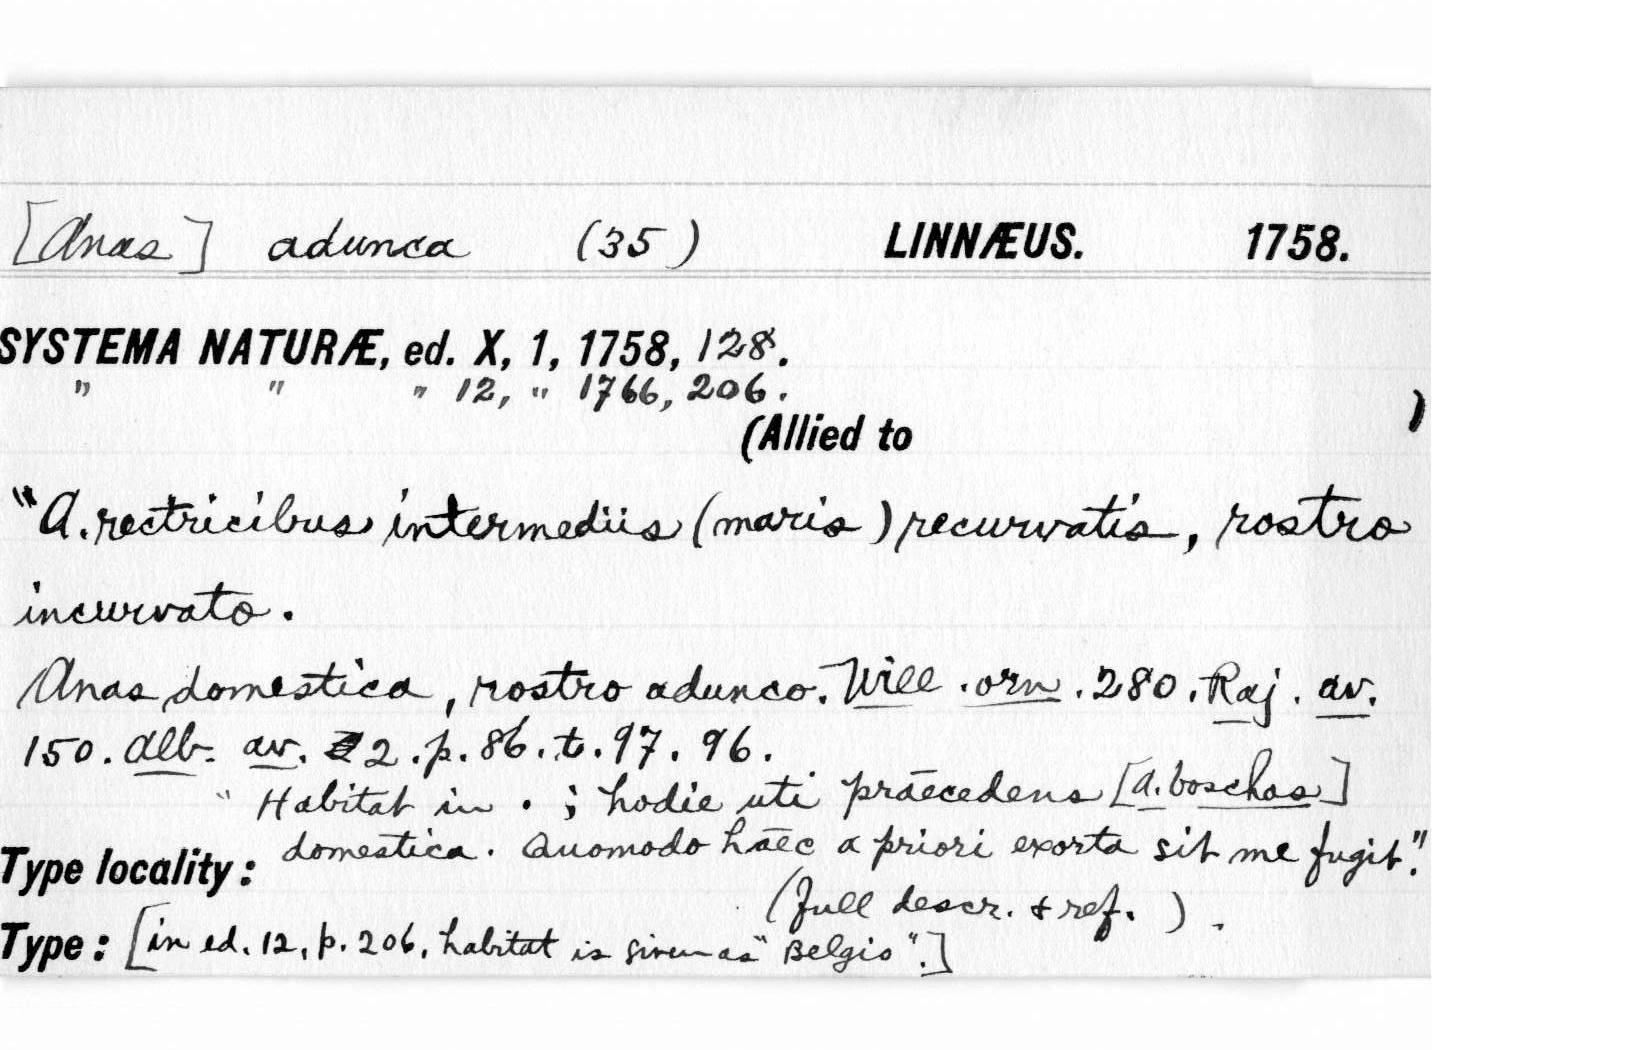 [Anas] adunca (35) LINNÆUS. 1758.
SYSTEMA NATURÆ, ed. X, 1, 1758, 128.
" " " 12, " 1766, 206.
(Allied to )
"A. rectricibus intermediis (maris) recurvatis, rostro
incurvato.
Anas domestica, rostro adunco. Will. orn. 280. Raj. av.
150. Alb. av. 2. p. 86. t. 97. 96.
"Habitat in . ; hodie uti præcedens [A. boschas]
domestica. Quomodo hæc a priori exorta sit me fugit."
Type locality:
(full descr. & ref. ).
Type: [in ed. 12, p. 206, habitat is given as "Belgio".]